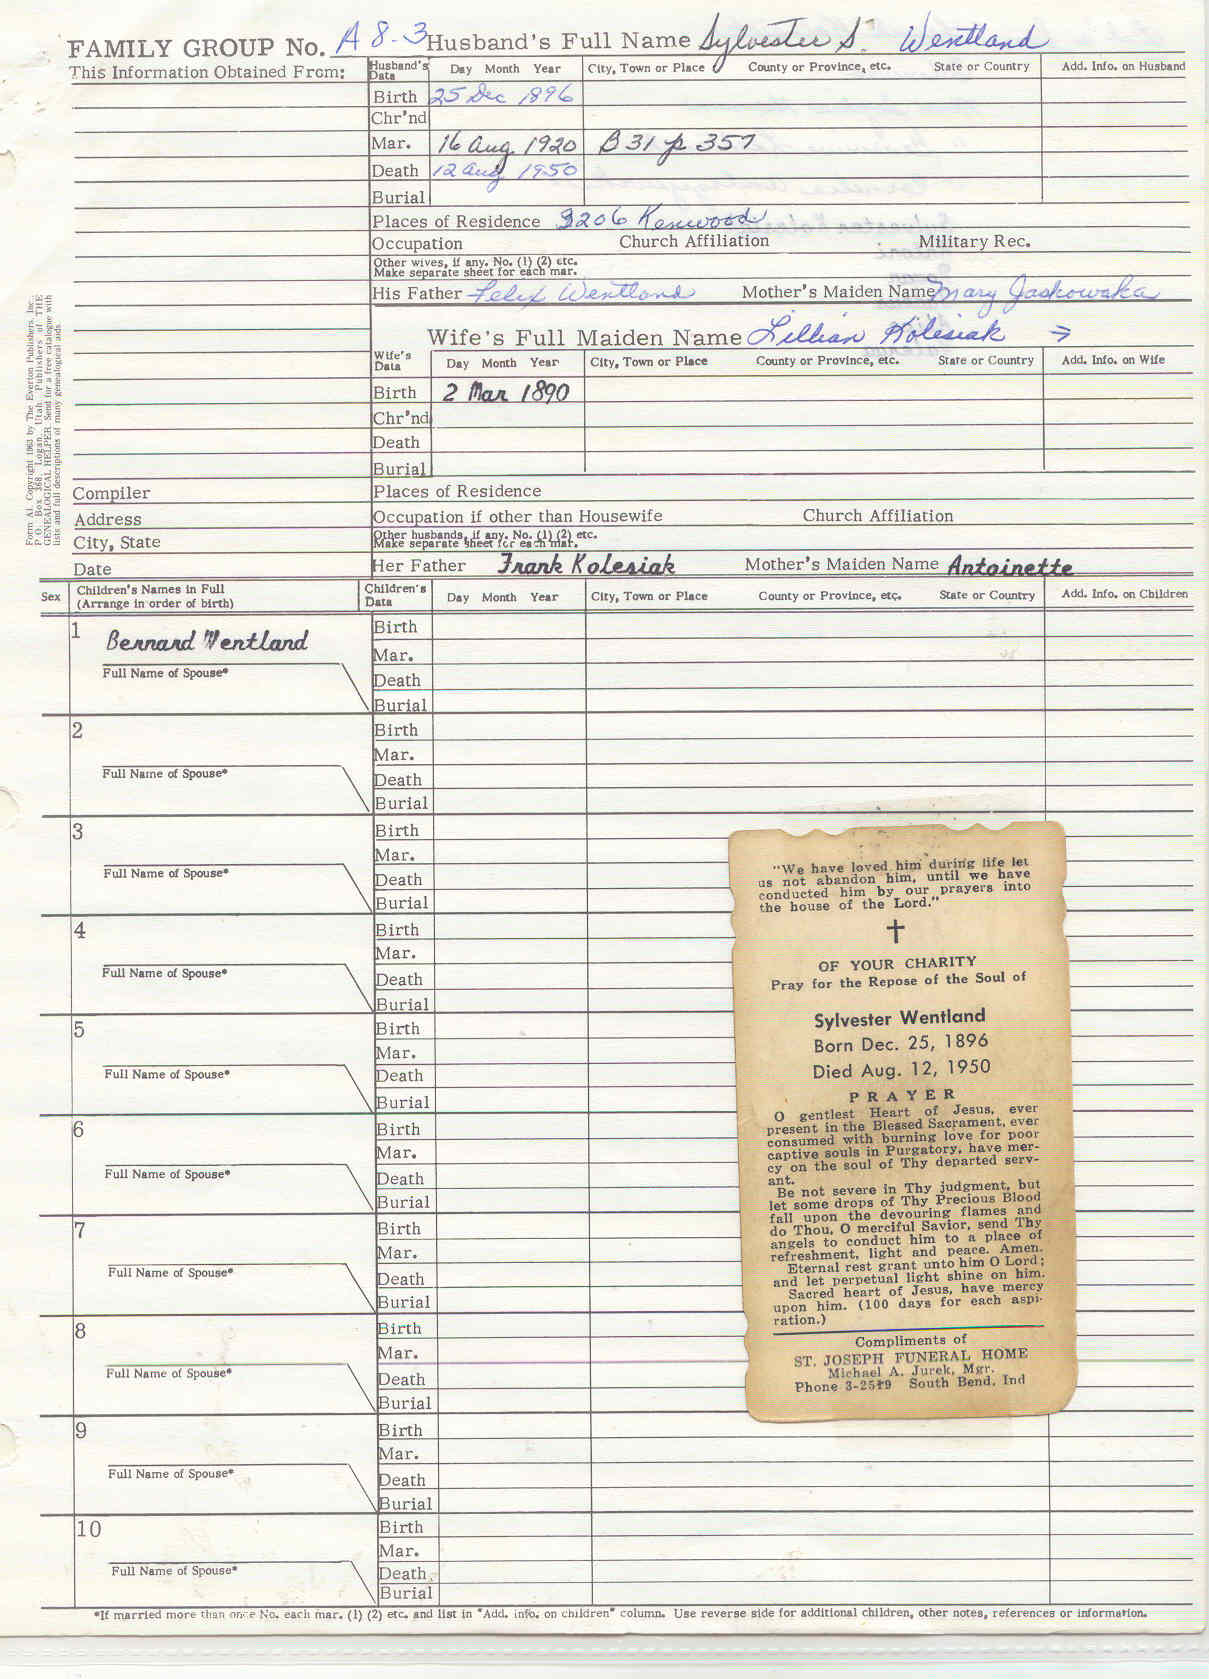 FAMILY GROUP No. A 8-3 Husband's Full Name Sylvester S. Wentland
This Information Obtained From:
Husband's Data Day Month Year City, Town or Place County or Province, etc. State or Country Add. Info. on Husband
Birth 25 Dec 1896
Chr'nd
Mar. 16 Aug 1920 B 31 p 357
Death 12 Aug 1950
Burial
Places of Residence 3206 Kenwood
Occupation Church Affiliation Military Rec.
Other wives, if any. No. (1) (2) etc.
Make separate sheet for each mar.
His Father Felix Wentland Mother's Maiden Name Mary Jaskowaka
Wife's Full Maiden Name Lillian Kolesiak →
Wife's Data Day Month Year City, Town or Place County or Province, etc. State or Country Add. Info. on Wife
Birth 2 Mar 1890
Chr'nd
Death
Burial
Form A1. Copyright 1963 by The Everton Publishers, Inc.,
P.O. Box 368, Logan, Utah. Publishers of THE
GENEALOGICAL HELPER. Send for a free catalogue with
lists and full descriptions of many genealogical aids.
Compiler Places of Residence
Address Occupation if other than Housewife Church Affiliation
City, State Other husbands, if any. No. (1) (2) etc.
Make separate sheet for each mar.
Date Her Father Frank Kolesiak Mother's Maiden Name Antoinette
Sex Children's Names in Full
(Arrange in order of birth) Children's Data Day Month Year City, Town or Place County or Province, etc. State or Country Add. Info. on Children
1 Bernard Wentland Birth
Mar.
Full Name of Spouse* Death
Burial
2 Birth
Mar.
Full Name of Spouse* Death
Burial
3 Birth
Mar.
Full Name of Spouse* Death
Burial
4 Birth
Mar.
Full Name of Spouse* Death
Burial
5 Birth
Mar.
Full Name of Spouse* Death
Burial
6 Birth
Mar.
Full Name of Spouse* Death
Burial
7 Birth
Mar.
Full Name of Spouse* Death
Burial
8 Birth
Mar.
Full Name of Spouse* Death
Burial
9 Birth
Mar.
Full Name of Spouse* Death
Burial
10 Birth
Mar.
Full Name of Spouse* Death
Burial
"We have loved him during life let
us not abandon him, until we have
conducted him by our prayers into
the house of the Lord."
OF YOUR CHARITY
Pray for the Repose of the Soul of
Sylvester Wentland
Born Dec. 25, 1896
Died Aug. 12, 1950
PRAYER
O gentlest Heart of Jesus, ever
present in the Blessed Sacrament, ever
consumed with burning love for poor
captive souls in Purgatory, have mer-
cy on the soul of Thy departed serv-
ant.
Be not severe in Thy judgment, but
let some drops of Thy Precious Blood
fall upon the devouring flames and
do Thou, O merciful Savior, send Thy
angels to conduct him to a place of
refreshment, light and peace. Amen.
Eternal rest grant unto him O Lord;
and let perpetual light shine on him.
Sacred heart of Jesus, have mercy
upon him. (100 days for each aspi-
ration.)
Compliments of
ST. JOSEPH FUNERAL HOME
Michael A. Jurek, Mgr.
Phone South Bend, Ind
*If married more than once No. each mar. (1) (2) etc. and list in "Add. info. on children" column. Use reverse side for additional children, other notes, references or information.